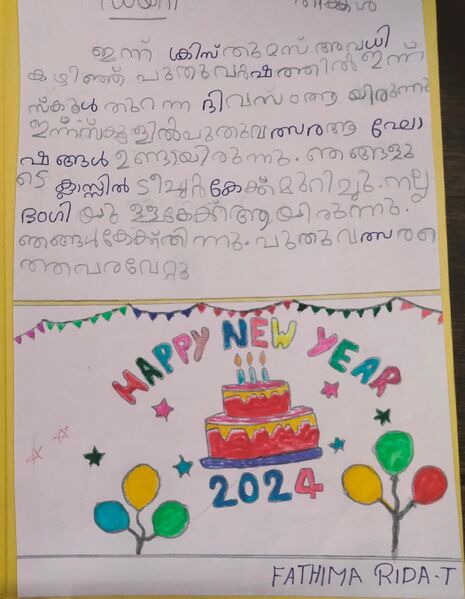 ഡയറി തിങ്കൾ
ഇന്ന് ക്രിസ്തുമസ് അവധി
കഴിഞ്ഞ് പുതുവർഷത്തിൽ ഇന്ന്
സ്കൂൾ തുറന്ന ദിവസം ആയിരുന്നു
ഇന്ന് സ്കൂളിൽ പുതുവത്സര ആഘോ
ഷങ്ങൾ ഉണ്ടായിരുന്നു. ഞങ്ങളു
ടെ ക്ലാസ്സിൽ ടീച്ചർ കേക്ക് മുറിച്ചു. നല്ല
ഭംഗിയുള്ള കേക്ക് ആയിരുന്നു.
ഞങ്ങൾ കേക്ക് തിന്നു. പുതുവത്സരത്തെ
ത്തവരവേറ്റു
HAPPY NEW YEAR
2024
FATHIMA RIDA.T